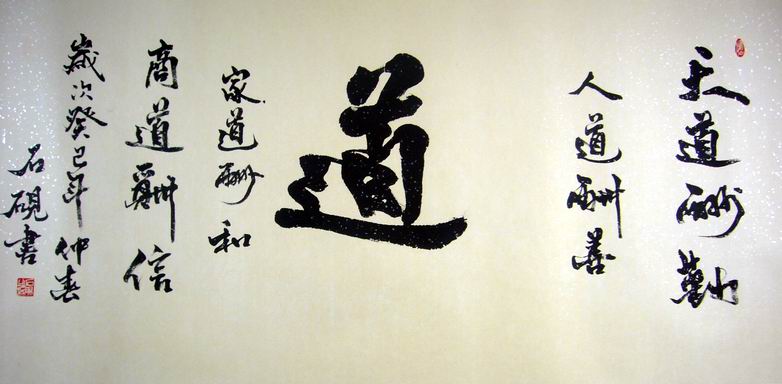 天道酬勤
人道酬善
道
家道酬和
商道酬信
歲次癸巳年仲春
石硯書